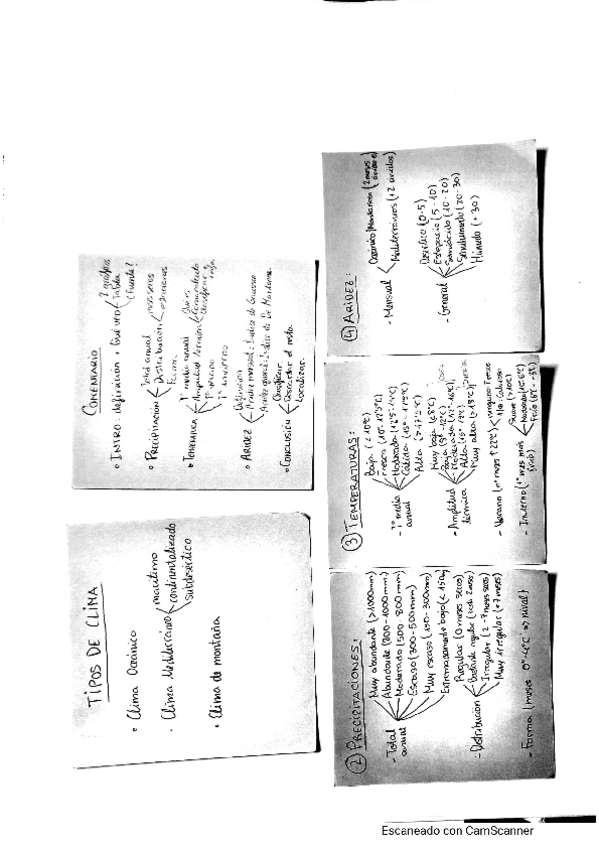 TIPOS DE CLIMA
• Clima Oceánico
• Clima Mediterráneo
marítimo
continentalizado
subdesértico
• Clima de montaña
COMENTARIO
• INTRO: definición + Qué veo
2 gráficos
Tabla
(Fuente?
• PRECIPITACIÓN
Total anual
Distribución
meses secos
Forma
• TEMPERATURA
Tª media anual
Amplitud térmica
Tª verano
Tª invierno
• ARIDEZ
Definición
Aridez mensual: Índice de Gaussen
Aridez general: Índice de De Martonne
• CONCLUSIÓN
Clasificar
Descartar el resto.
Localizar.
② PRECIPITACIONES:
- Total anual
Muy abundante (>1000mm)
Abundante (800-1000mm)
Moderada (500-800mm)
Escasa (300-500mm)
Muy escasa (150-300mm)
Extremadamente baja (<150)
- Distribución
Regular (0 meses secos)
Bastante regular (hasta 2 meses)
Irregular (2-7 meses secos)
Muy irregular (+7 meses)
- Forma (meses 0º-4ºC ⇒ nival)
③ TEMPERATURAS:
- Tª media anual
Baja (<10ºC)
Fresca (10º-12'5ºC)
Moderada
Cálida
Alta (>17'5ºC)
- Amplitud térmica
Muy baja (<8ºC)
Baja (9º-12ºC)
Moderada
Alta
Muy alta (>18ºC)
- Verano (nº mes + 22ºC)
ninguno: Fresco
+1: Caluroso
- Invierno (Tª mes más frío)
Suave (>10ºC)
Moderado (10º-6ºC)
Frío
④ ARIDEZ:
- Mensual
Mediterráneos (+2 áridos)
- General
Desértico (0-5)
Estepario (5-10)
Semiárido (10-20)
Semihúmedo (20-30)
Húmedo (+30)
Escaneado con CamScanner